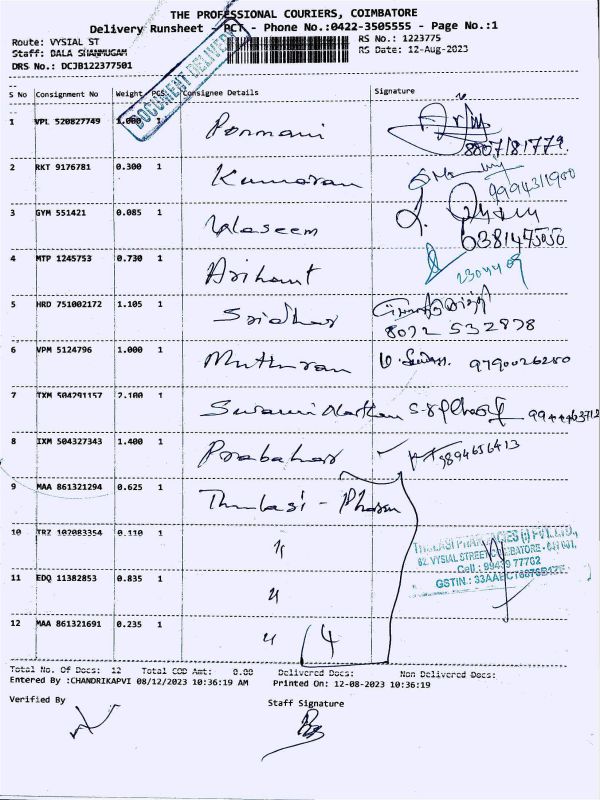 THE PROFESSIONAL COURIERS, COIMBATORE
Delivery Runsheet - PCT - Phone No.:0422-3505555 - Page No.:1
Route: VYSIAL ST
RS No.: 1223775
Staff: BALA SHANMUGAM
RS Date: 12-Aug-2023
DRS No.: DCJB122377501
DOCUMENT DELIVERY
S No Consignment No Weight PCS Consignee Details Signature
1 VPL 520827749 1.000 1 Ponmani
8807181779
2 RKT 9176781 0.300 1 Kumaran
9994311900
3 GYM 551421 0.085 1 Waseem
6381475050
4 MTP 1245753 0.730 1 Arihant
5 HRD 751002172 1.105 1 Sridhar
8072 532878
6 VPM 5124796 1.000 1 Muthuran 9790026280
7 TXM 504291157 2.100 1 Swaminathan
8 IXM 504327343 1.400 1 Prabahar 9894656413
9 MAA 861321294 0.625 1 Thulasi - Pharm
10 TRZ 102083354 0.110 1 "
THULASI PHARMACIES (I) PVT. LTD.,
62, VYSIAL STREET, COIMBATORE - 641 001.
Cell : 99439 77762
11 EDQ 11382853 0.835 1 "
12 MAA 861321691 0.235 1 " 4
Total No. Of Docs: 12 Total COD Amt: 0.00 Delivered Docs: Non Delivered Docs:
Entered By :CHANDRIKAPVI 08/12/2023 10:36:19 AM Printed On: 12-08-2023 10:36:19
Verified By Staff Signature